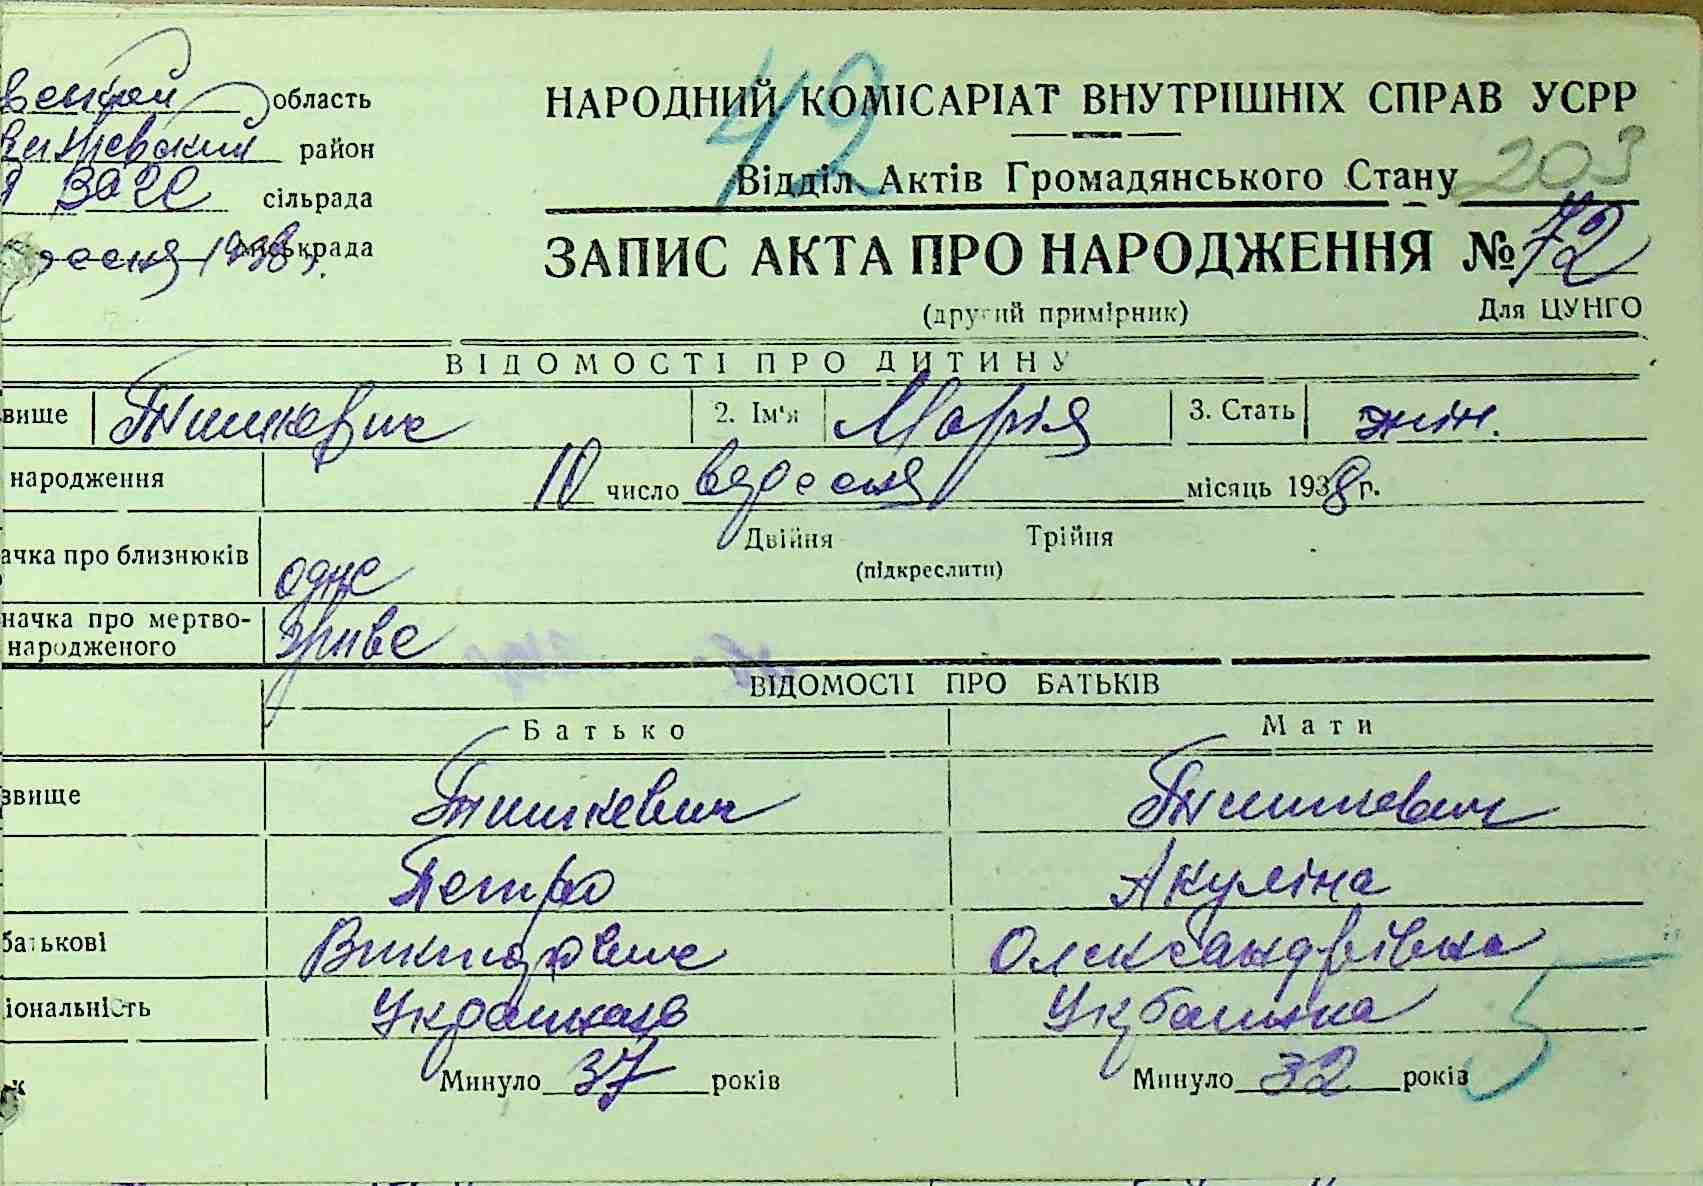 область
район
ЗАГС сільрада
вересня 1938 р. міськрада
42
НАРОДНИЙ КОМІСАРІАТ ВНУТРІШНІХ СПРАВ УСРР
Відділ Актів Громадянського Стану 203
ЗАПИС АКТА ПРО НАРОДЖЕННЯ № 72
(другий примірник) Для ЦУНГО
ВІДОМОСТІ ПРО ДИТИНУ
звище Тишкевич 2. Ім'я Марія 3. Стать жін.
народження 10 число вересня місяць 1938 р.
ачка про близнюків одне Двійня Трійня
(підкреслити)
начка про мертво-
народженого живе
ВІДОМОСТІ ПРО БАТЬКІВ
Батько Мати
звище Тишкевич Тишкевич
Петро Акуліна
батькові Вікторович Олександрівна
іональність Українець Українка
Минуло 37 років Минуло 32 років